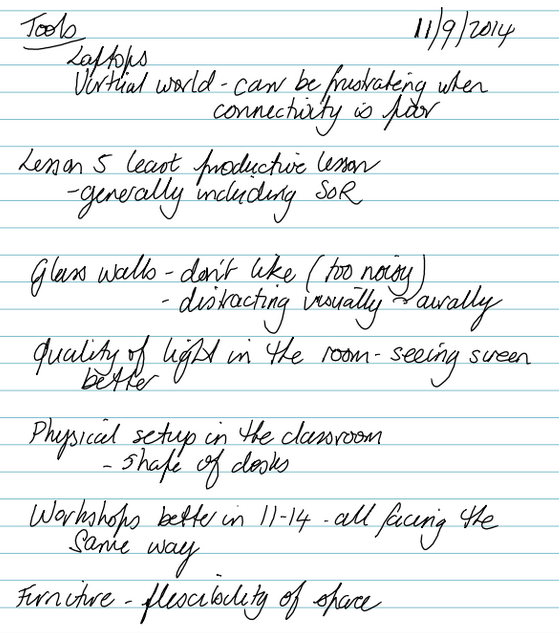 Tools 11/9/2014
Laptops
Virtual world - can be frustrating when
connectivity is poor
Lesson 5 least productive lesson
- generally including SoR
Glass walls - don't like (too noisy)
- distracting visually ~ aurally
Quality of light in the room - seeing screen
better
Physical setup in the classroom
- shape of desks
Workshops better in 11-14 - all facing the
same way
Furniture - flexibility of space